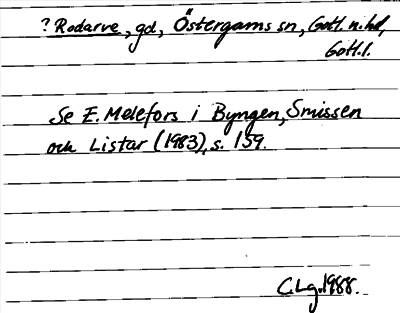 ? Rodarve, gd, Östergarns sn, Gotl. n. hd,
Gotl. l.
Se E. Melefors i Byngen, Smissen
och Listar (1983), s. 159.
C. Lg. 1988.